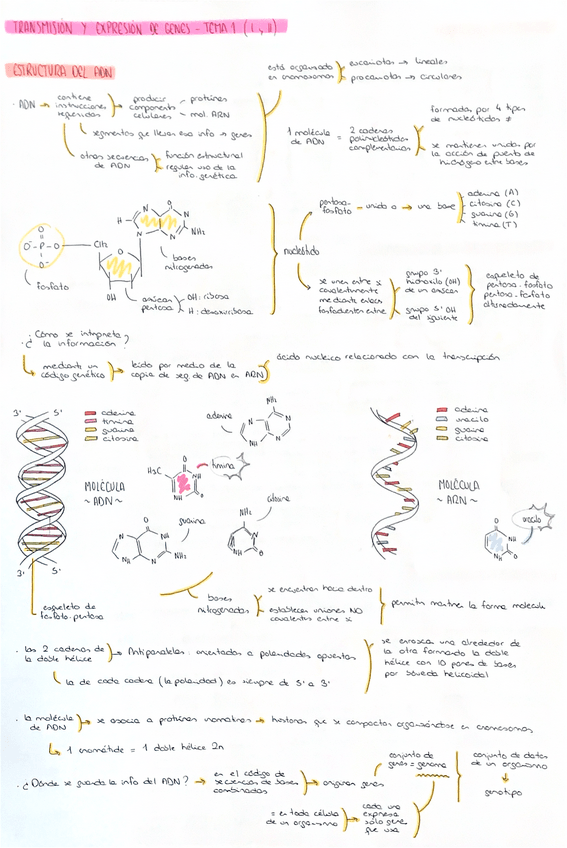 TRANSMISIÓN Y EXPRESIÓN DE GENES - TEMA 1 (I y II)
ESTRUCTURA DEL ADN
está organizado
en cromosomas
eucariotas → lineales
procariotas → circulares
· ADN →
contiene
instrucciones
producir
componentes
celulares
proteínas
mol. ARN
segmentos que llevan esa info → genes
otras secuencias
de ADN
función estructural
regular uso de la
info. genética
1 molécula
de ADN
=
2 cadenas
polinucleótidas
complementarias
formadas por 4 tipos
de nucleótidos ≠
se mantienen unidas por
la acción de puente de
hidrógeno entre bases
nucleótido
pentosa-
fosfato
- unido a → una base
adenina (A)
citosina (C)
guanina (G)
timina (T)
se unen entre sí
covalentemente
mediante enlaces
fosfodiéster entre
grupo 3'
hidroxilo (OH)
de un azúcar
grupo 5' OH
del siguiente
esqueleto de
pentosa-fosfato
pentosa-fosfato
alternadamente
O⁻-P-O
O
O⁻
CH₂
O
H
N
N
N
N
O
NH₂
fosfato
bases
nitrogenadas
OH
azúcar
pentosa
OH: ribosa
H: desoxirribosa
¿Cómo se interpreta
la información?
mediante un
código genético
leído por medio de la
copia de seg. de ADN en ARN
ácido nucleico relacionado con la transcripción
3' 5'
adenina
timina
guanina
citosina
MOLÉCULA
~ADN~
adenina
NH₂
timina
H₃C
citosina
NH₂
guanina
NH₂
adenina
uracilo
guanina
citosina
MOLÉCULA
~ARN~
uracilo
3' 5'
esqueleto de
fosfato-pentosa
bases
nitrogenadas
se encuentran hacia dentro
establecen uniones NO
covalentes entre sí
permiten mantener la forma molécula
· las 2 cadenas de
la doble hélice
Antiparalelas: orientadas a polaridades opuestas
la de cada cadena (la polaridad) es siempre de 5' a 3'
se enrosca una alrededor de
la otra formando la doble
hélice con 10 pares de bases
por helicoidal
· la molécula
de ADN
→ se asocia a proteínas → histonas que se compactan organizándose en cromosomas
1 cromátide = 1 doble hélice 2n
· ¿Dónde se guarda la info del ADN? →
en el código de
secuencias de bases
combinadas
originan genes
conjunto de
genes = genoma
conjunto de datos
de un organismo
genotipo
= en toda célula
de un organismo
cada una
expresa
solo genes
que usa